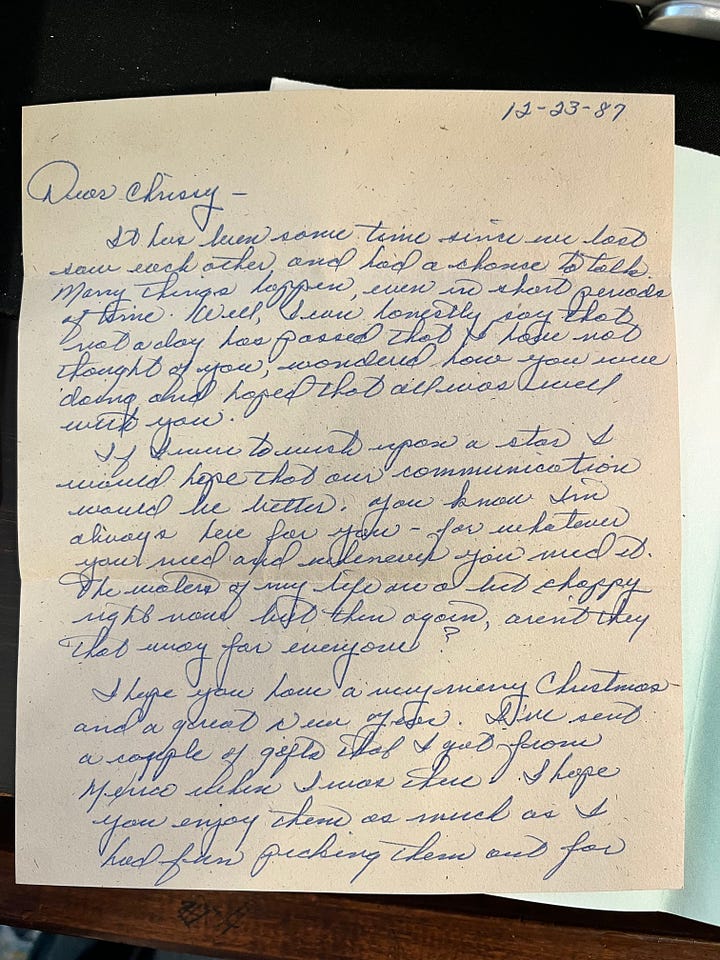 12-23-87
Dear Chrissy -
It has been some time since we last
saw each other and had a chance to talk.
Many things happen, even in short periods
of time. Well, I can honestly say that
not a day has passed that I have not
thought of you, wondered how you were
doing and hoped that all was well
with you.
If I were to wish upon a star I
would hope that our communication
would be better. You know I'm
always here for you - for whatever
you need and whenever you need it.
The waters of my life are a bit choppy
right now but then again, aren't they
that way for everyone?
I hope you have a very merry Christmas
and a great New Year. I've sent
a couple of gifts that I got from
Mexico when I was there. I hope
you enjoy them as much as I
had fun picking them out for